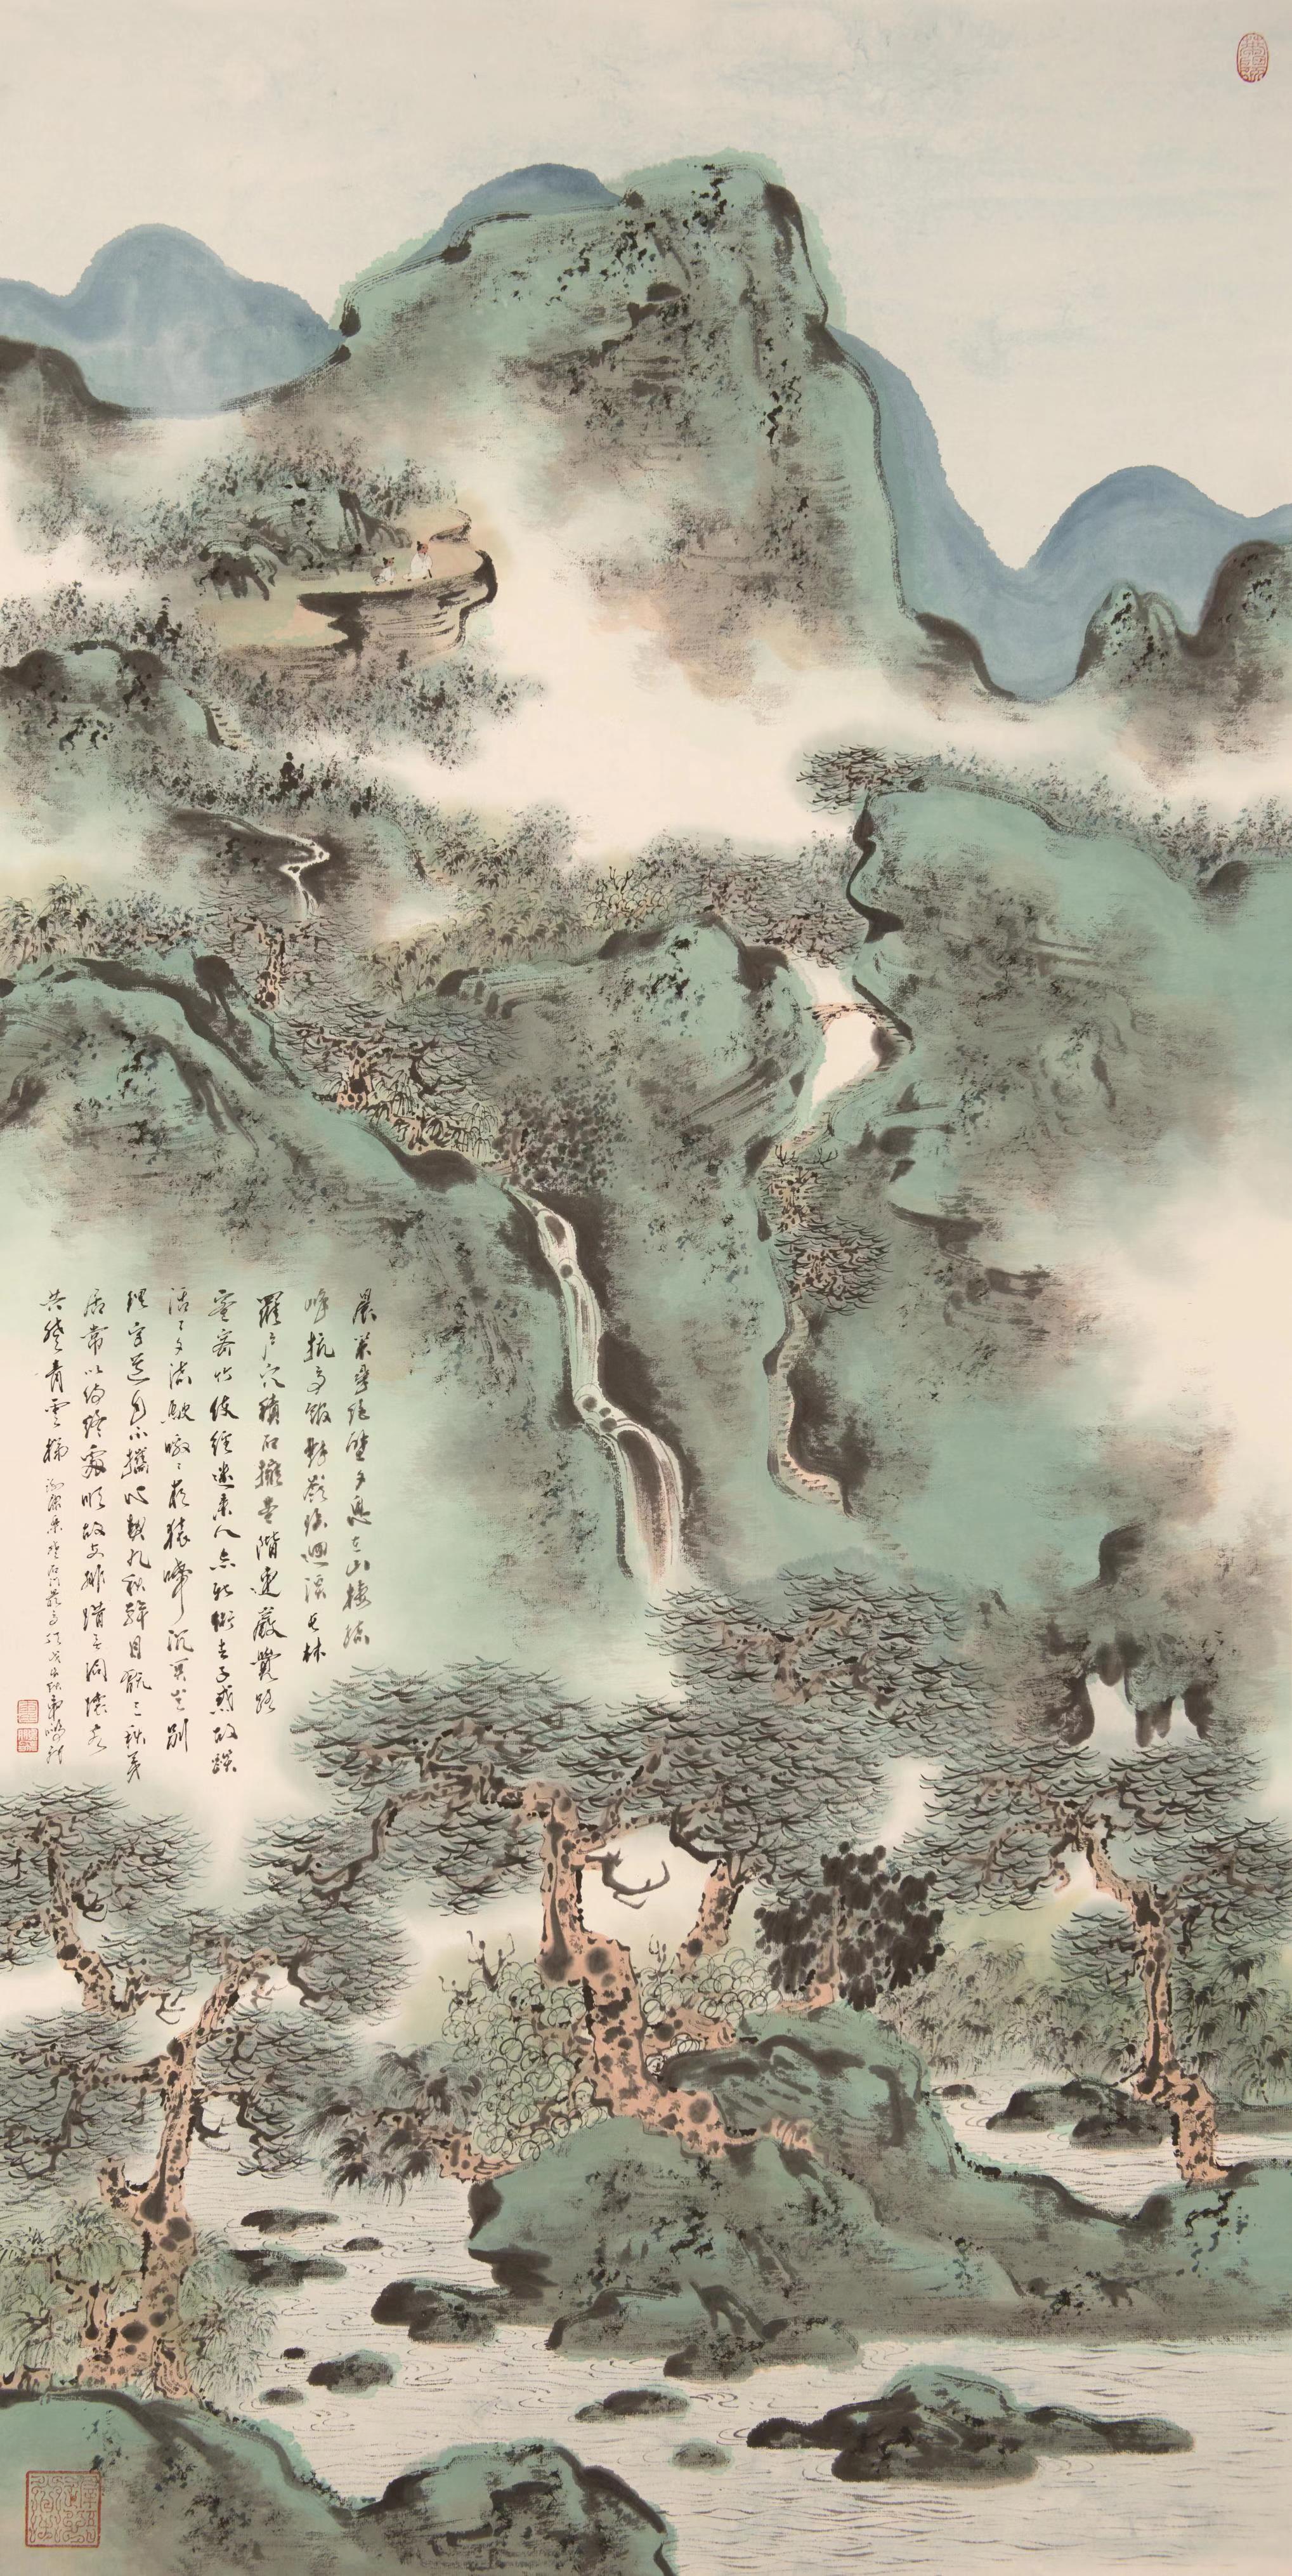 晨策尋絕壁夕息在山棲疏
峰抗高館對嶺臨迴溪長林
羅戶穴積石擁基階連巖覺路
塞密竹使徑迷來人忘新術去子惑故蹊
活〻夕流駛噭〻夜猿啼沉冥豈別
理守道自不攜心契九秋幹目翫三春荑
居常以待終處順故安排惜無同懷客
共登青雲梯 謝康樂登石門最高頂